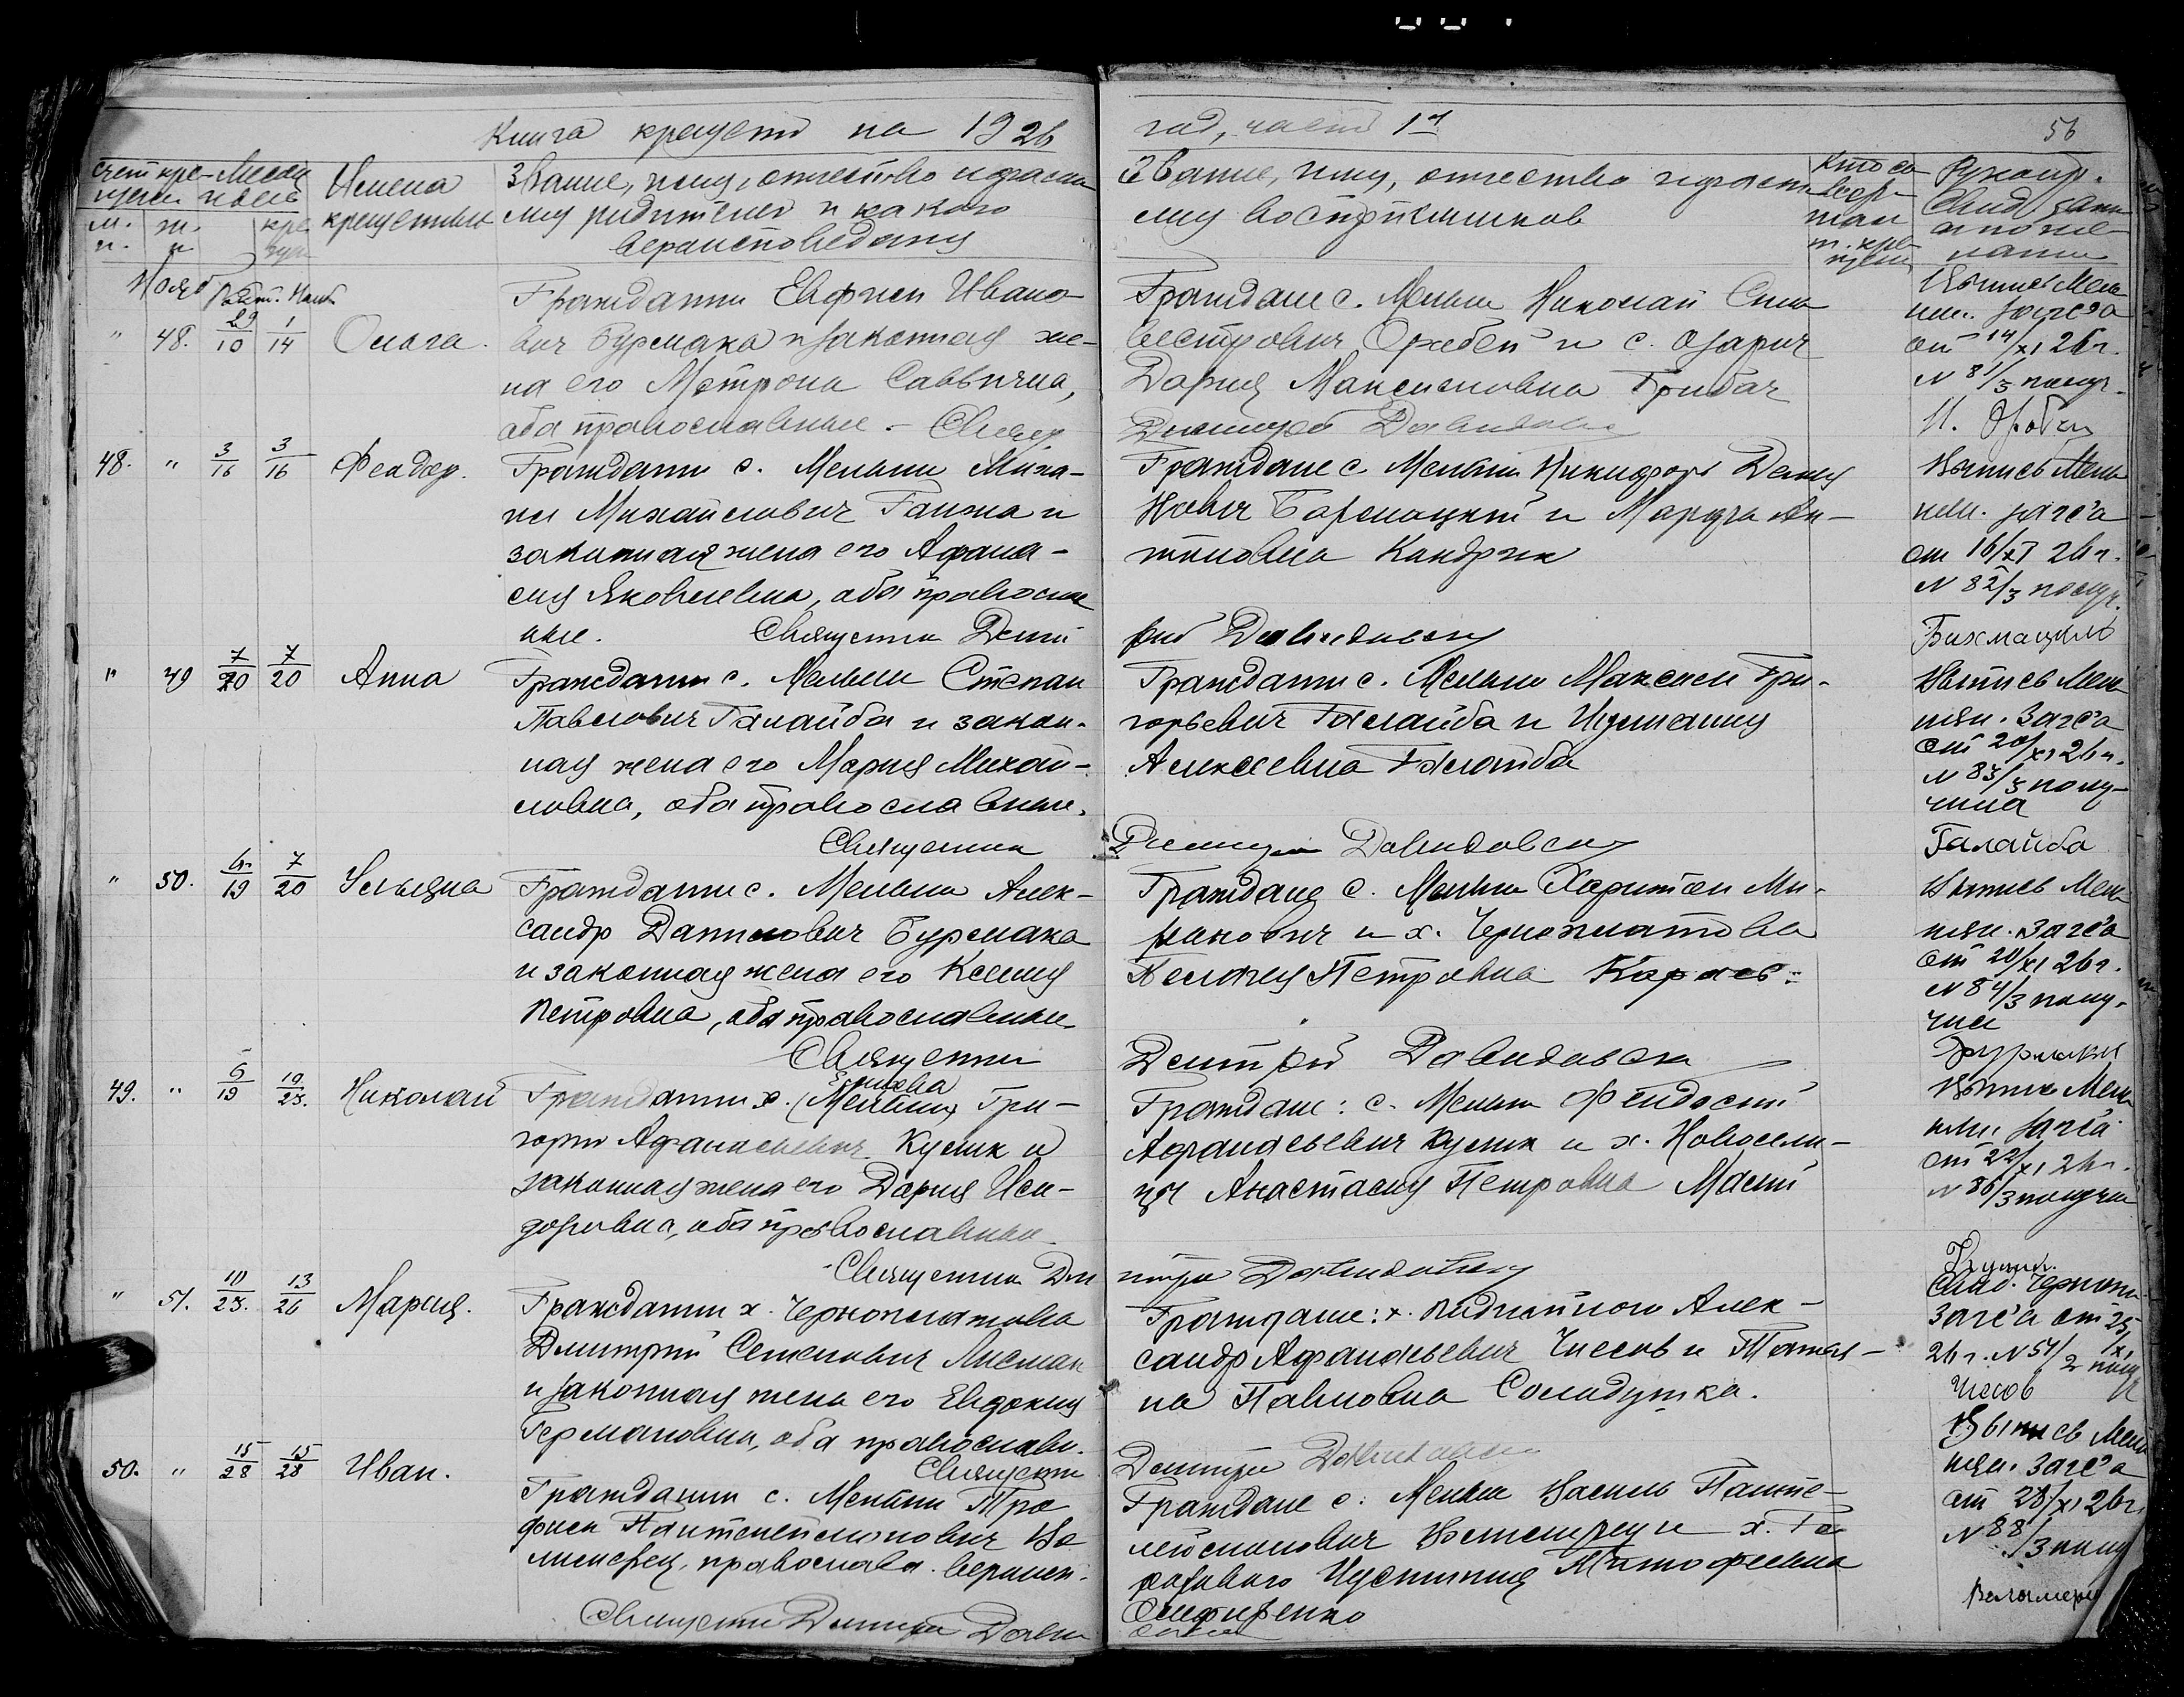 Книга крещеной на 1926
год, часть 1я
56
счет кре-
щен.
Месяц
и день
Имена
крещеных
Звание, имя, отчество и фами-
лия родителей и какого
вероисповедания
Звание, имя, отчество и фами-
лия восприемников
Кто со-
вер-
шал
т. кре-
щен
Рукопр.
м. п.
ж. п.
Нояб
" 48. 29/10 1/14 Ольга.
Гражданин Евфим Ивано-
вич Бурмака и законная же-
на его Матрона Саввична,
оба православные. – Священ
Граждане с. Мельни Николай Силь
вестрович Орабей и с. Озарич
Дария Максимовна Грибач
Дмитрий Давидовск
Выпись Мель
нян. загса
от 14/XI 26 г.
N 81/3 получ.
48. " 3/16 3/16 Феодор.
Гражданин с. Мельни Миха-
ил Михайлович Ганжа и
законная жена его Афана-
сия Яковлевна, оба православ
ные. Священник Дмит
Граждане с Мельни Никифор Демья
нович Бахмацкий и Марфа Ан-
тоновна Кандрик
рий Давидовский
Выпись Мель
нян. загса
от 16/XI 26 г.
N 82/3 получ.
Бахмацкий
" 49 7/20 7/20 Анна
Гражданин с. Мельни Степан
Павлович Галайба и закон-
ная жена его Мария Михай-
ловна, оба православные.
Священник
Граждани с. Мельни Максим Гри-
горьевич Галайба и Иулиания
Алексеевна Галайба
Дмитрий Давидовский
Выпись Мель
нян. Загса
от 20/XI 26 г.
N 83/3 полу-
чила
Галайба
" 50. 6/19 7/20 Ульяна
Гражданин с. Мельни Алек-
сандр Данилович Бурмака
и законная жена его Ксения
Петровна, оба православные
Священник
Граждане с. Мельни Харитон Ми-
ронович и х. Черноплатова
Пелагия Петровна
Дмитрий Давидовск
Выпись Мель
нян. Загса
от 20/XI 26 г.
N 84/3 полу-
чил
Бурмака
49. " 6/19 10/23. Николай
Гражданин х. (Мельни) Гри-
горий Афанасьевич Кулик и
законная жена его Дария Иси-
доровна, оба православные
Священник Дм
Граждане: с. Мельни Феодосий
Афанасьевич Кулик и х. Новосели-
цы Анастасия Петровна
итрий Давидовский
Выпись Мель
нян. загса
от 22/XI 26 г.
N 86/3 получил
Кулик.
" 51. 10/23. 13/26 Мария.
Гражданин х. Черноплатова
Дмитрий Семенович Лисман
и законная жена его Евдокия
Германовна, оба православн.
Священник
Граждане: х. Алек-
сандр Афанасьевич Чесов и Татья-
на Павловна Солидушка.
Дмитрий Давидовск
Загса от 25/XI
26 г. N 54/2 получ
Чесов
50. " 15/28 15/28 Иван.
Гражданин с. Мельни Тро
фим Пантелеймонович Во
лимерец, православн. вероисп.
Священник Дмитрий Давид
Граждане с. Мельни Василь Панте-
леймонович и х. Га
Иустиния Тимофеевна
Онуфриенко
Выпись Мель
нян. Загса
от 28/XI 26 г.
N 88/3 получ
Валамерец